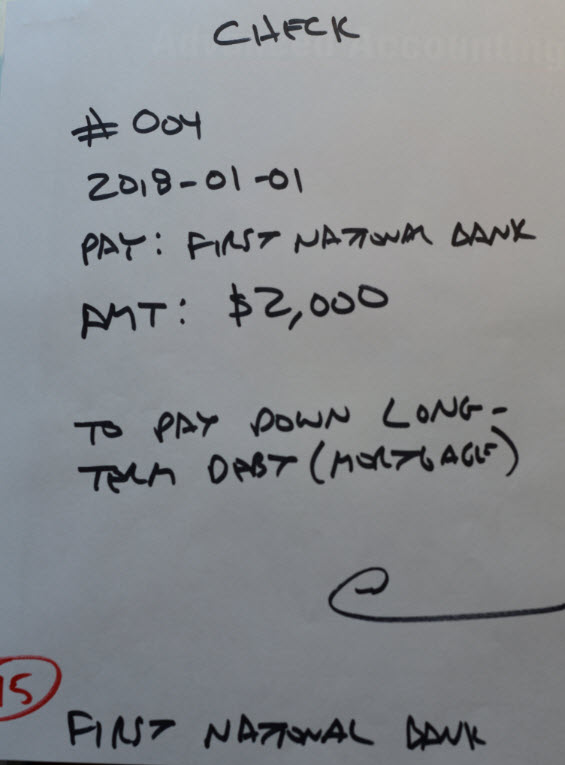 CHECK
#004
2018-01-01
PAY: FIRST NATIONAL BANK
AMT: $2,000
TO PAY DOWN LONG-
TERM DEBT (MORTGAGE)
15
FIRST NATIONAL BANK
Advanced Accounting